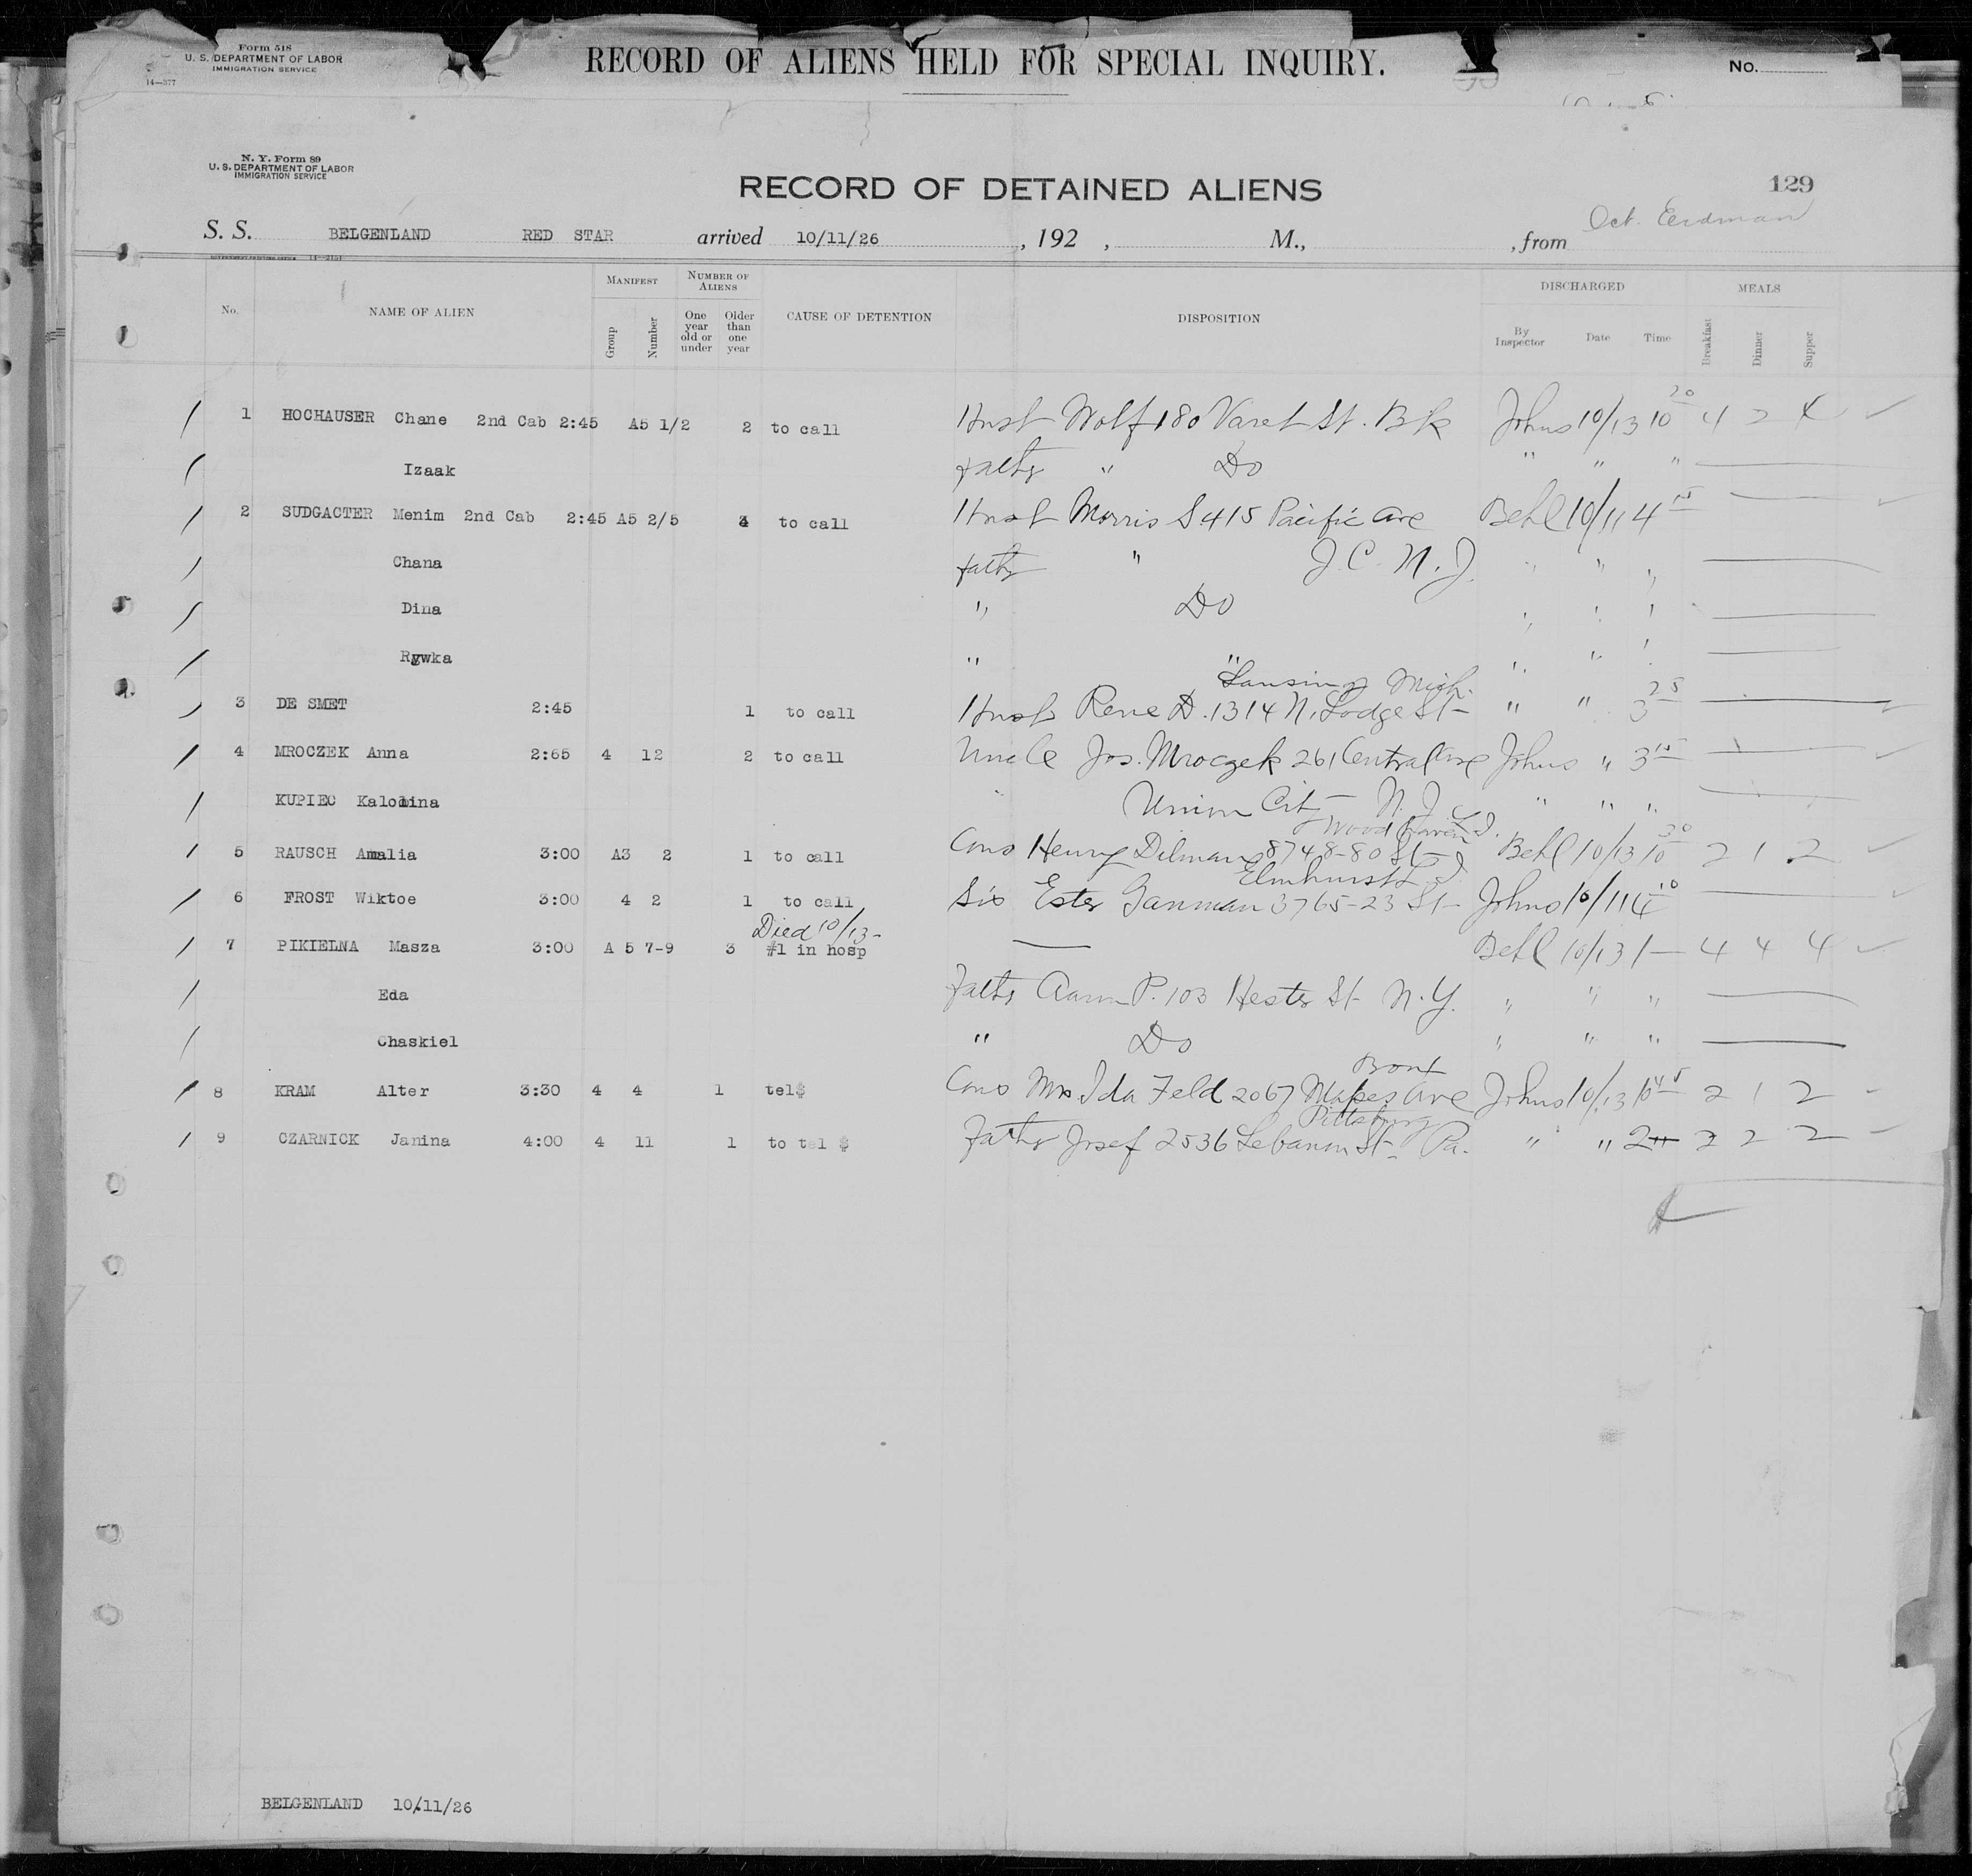 Form 518
U. S. DEPARTMENT OF LABOR
IMMIGRATION SERVICE
14—377
RECORD OF ALIENS HELD FOR SPECIAL INQUIRY.
No.
N. Y. Form 89
U. S. DEPARTMENT OF LABOR
IMMIGRATION SERVICE
RECORD OF DETAINED ALIENS
129
S. S. BELGENLAND RED STAR arrived 10/11/26, 192 , M., , from Oct. Eerdman
No. NAME OF ALIEN MANIFEST Group Number NUMBER OF ALIENS One year old or under Older than one year CAUSE OF DETENTION DISPOSITION DISCHARGED By Inspector Date Time MEALS Breakfast Dinner Supper
1 HOCHAUSER Chane 2nd Cab 2:45 A5 1/2 2 to call Husb Wolf 180 Varet St. Bk Johns 10/13 10 20 4 2 4
Izaak Fathr " Do " " "
2 SUDGACTER Menim 2nd Cab 2:45 A5 2/5 to call Husb Morris S 415 Pacific Ave Behl 10/11 4 15
Chana Fathr " J. C. N. J. " " "
Dina " Do " " "
Rywka " " " " "
Lansing Mich.
3 DE SMET 2:45 1 to call Husb Rene D. 1314 N. Lodge St " " 3 25
4 MROCZEK Anna 2:65 4 12 2 to call Uncle Jos. Mroczek 261 Central Ave Johns " 3 15
KUPIEC " Union City N. J. " " "
Woodhaven L. I.
5 RAUSCH Amalia 3:00 A3 2 1 to call Cous Henry Dilman 8748-80 St Behl 10/13 10 30 2 1 2
Elmhurst L. I.
6 FROST Wiktoe 3:00 4 2 1 to call Sis Ester Ganman 3765-23 St Johns 10/11 4 10
Died 10/13-
7 PIKIELNA Masza 3:00 A 5 7-9 3 #1 in hosp — Behl 10/13 1— 4 4 4
Eda Fathr Aaron P. 103 Hester St N. Y. " " "
Chaskiel " Do " " "
Bronx
8 KRAM Alter 3:30 4 4 1 tel$ Cous Mrs Ida Feld 2067 Mapes Ave Johns 10/13 10 45 2 1 2
Pittsburg
9 CZARNICK Janina 4:00 4 11 1 to tel $ Fathr Josef 2536 Lebanon St. Pa. " " 2 2 2 2
BELGENLAND 10/11/26